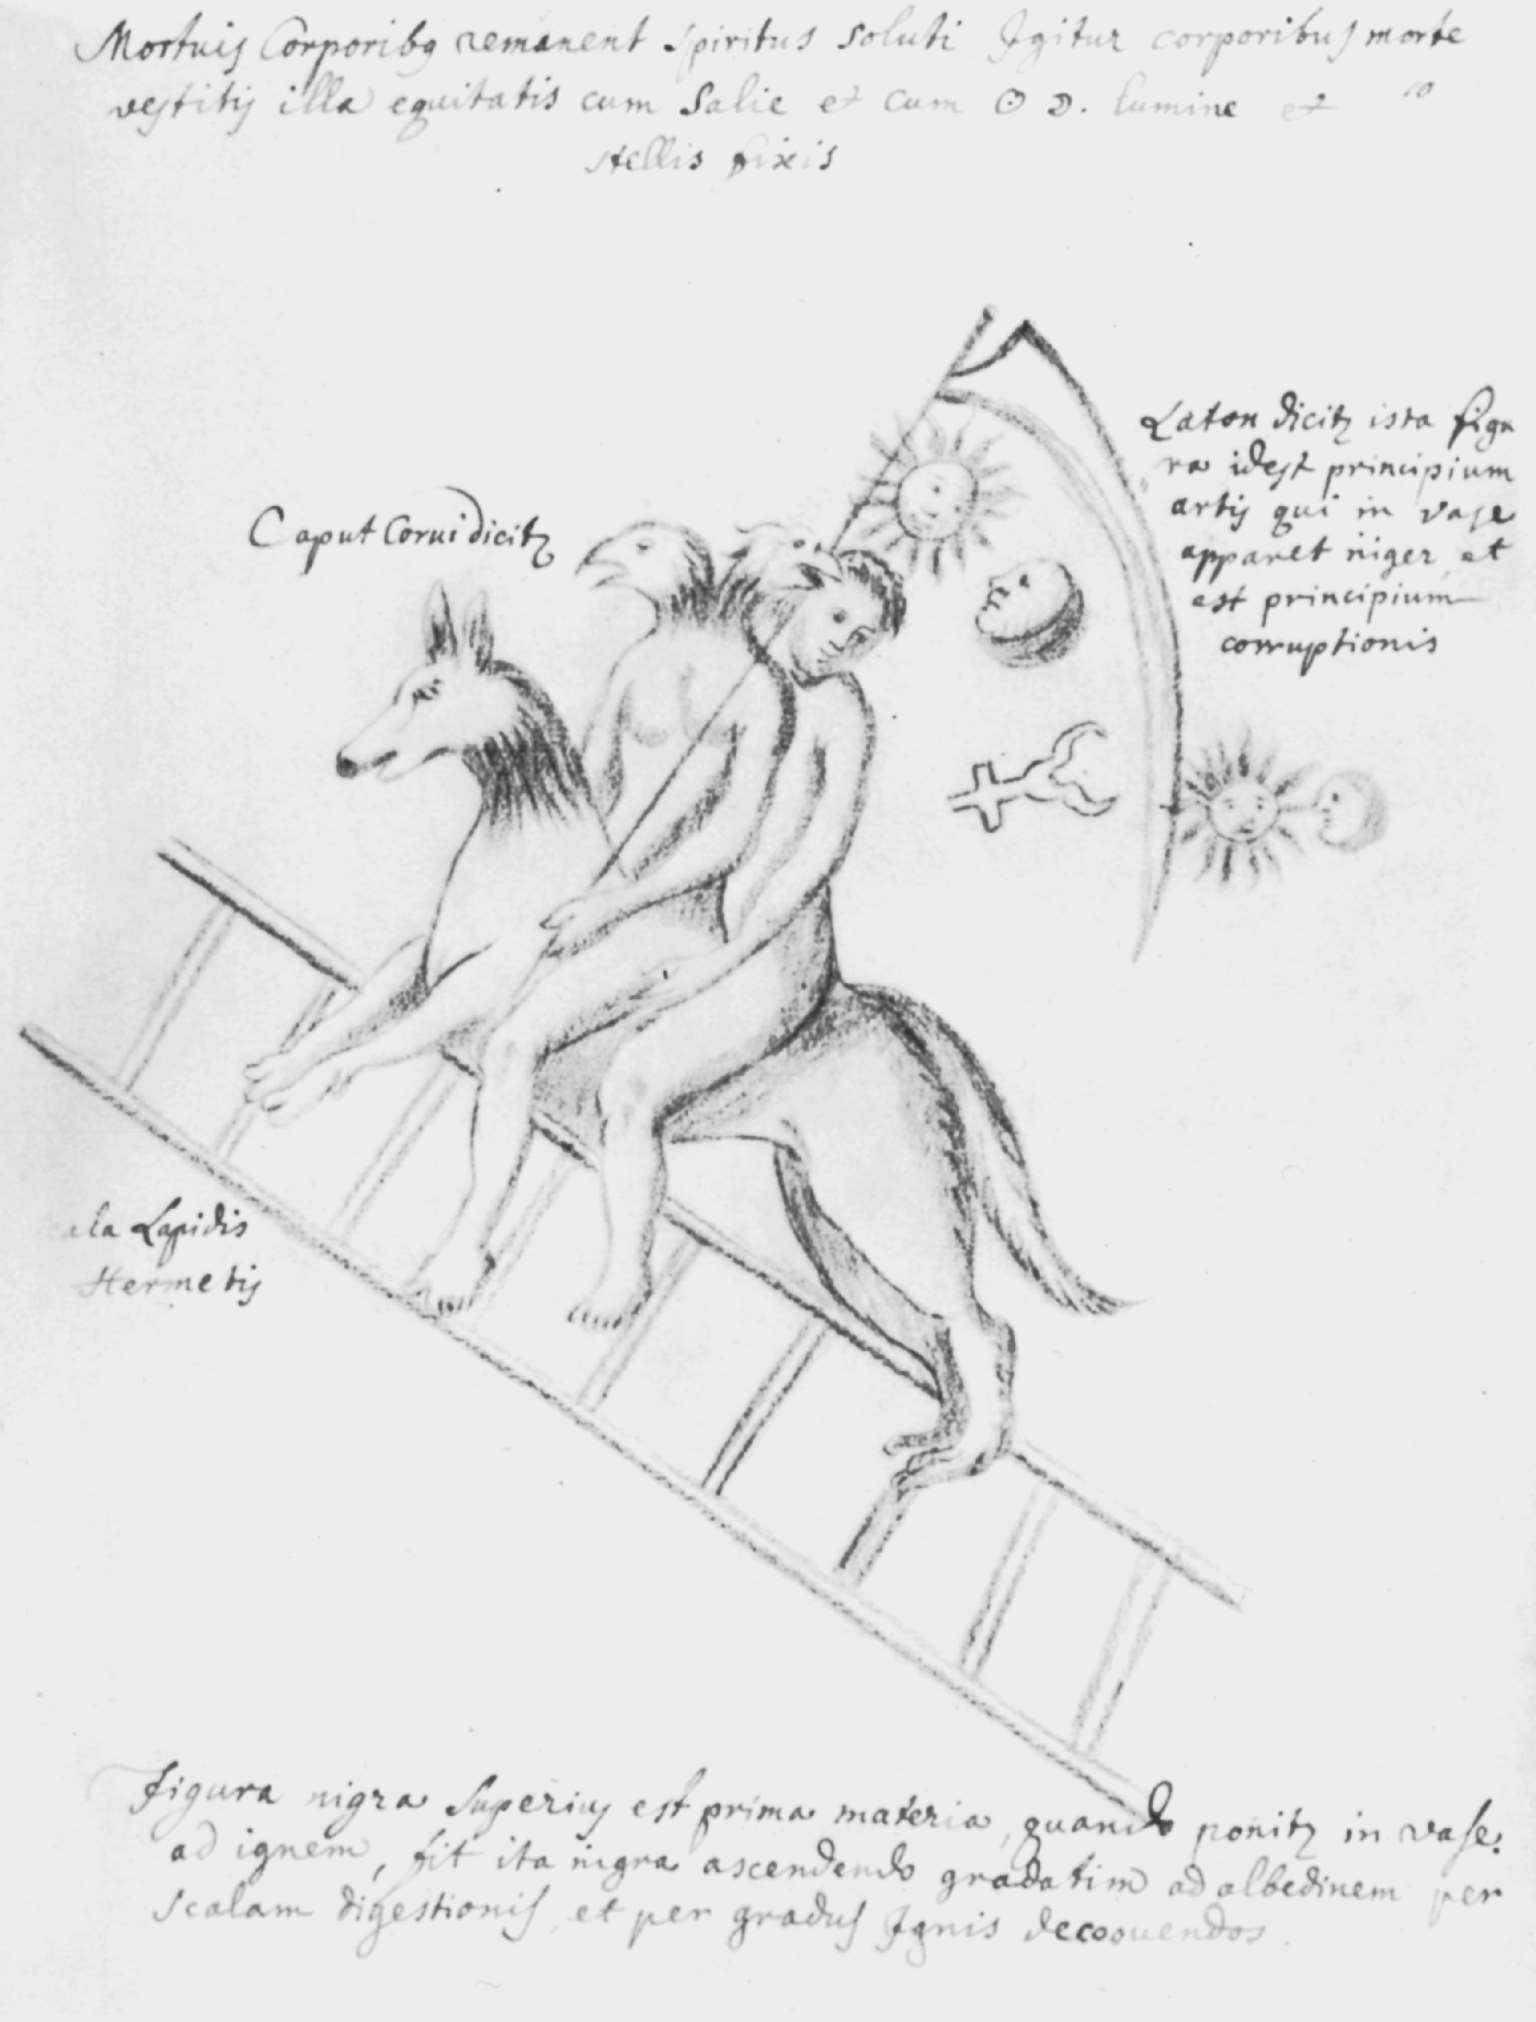 Mortuis Corporibq remanent spiritus soluti Igitur corporibus morte
vestitis illa equitatis cum Salie et cum ☉ ☽. lumine et
stellis fixis
Laton dicitz ista figu
ra idest principium
artis qui in vase
apparet niger et
est principium
corruptionis
Caput Corui dicitz
ala Lapidis
Hermetis
Figura nigra Superius est prima materia, quando ponitz in vase.
ad ignem, fit ita nigra ascendendo gradatim ad albedinem per
scalam digestionis et per gradus Ignis decoouendos.